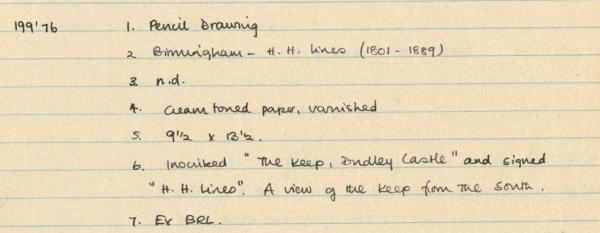 199'76 1. Pencil Drawing
2 Birmingham - H. H. Lines (1801 - 1889)
3 n.d.
4. Cream toned paper, varnished
5. 9½ x 13½.
6. Inscribed "The Keep, Dudley Castle" and signed
"H. H. Lines". A view of the Keep from the South.
7. Ex BRL.